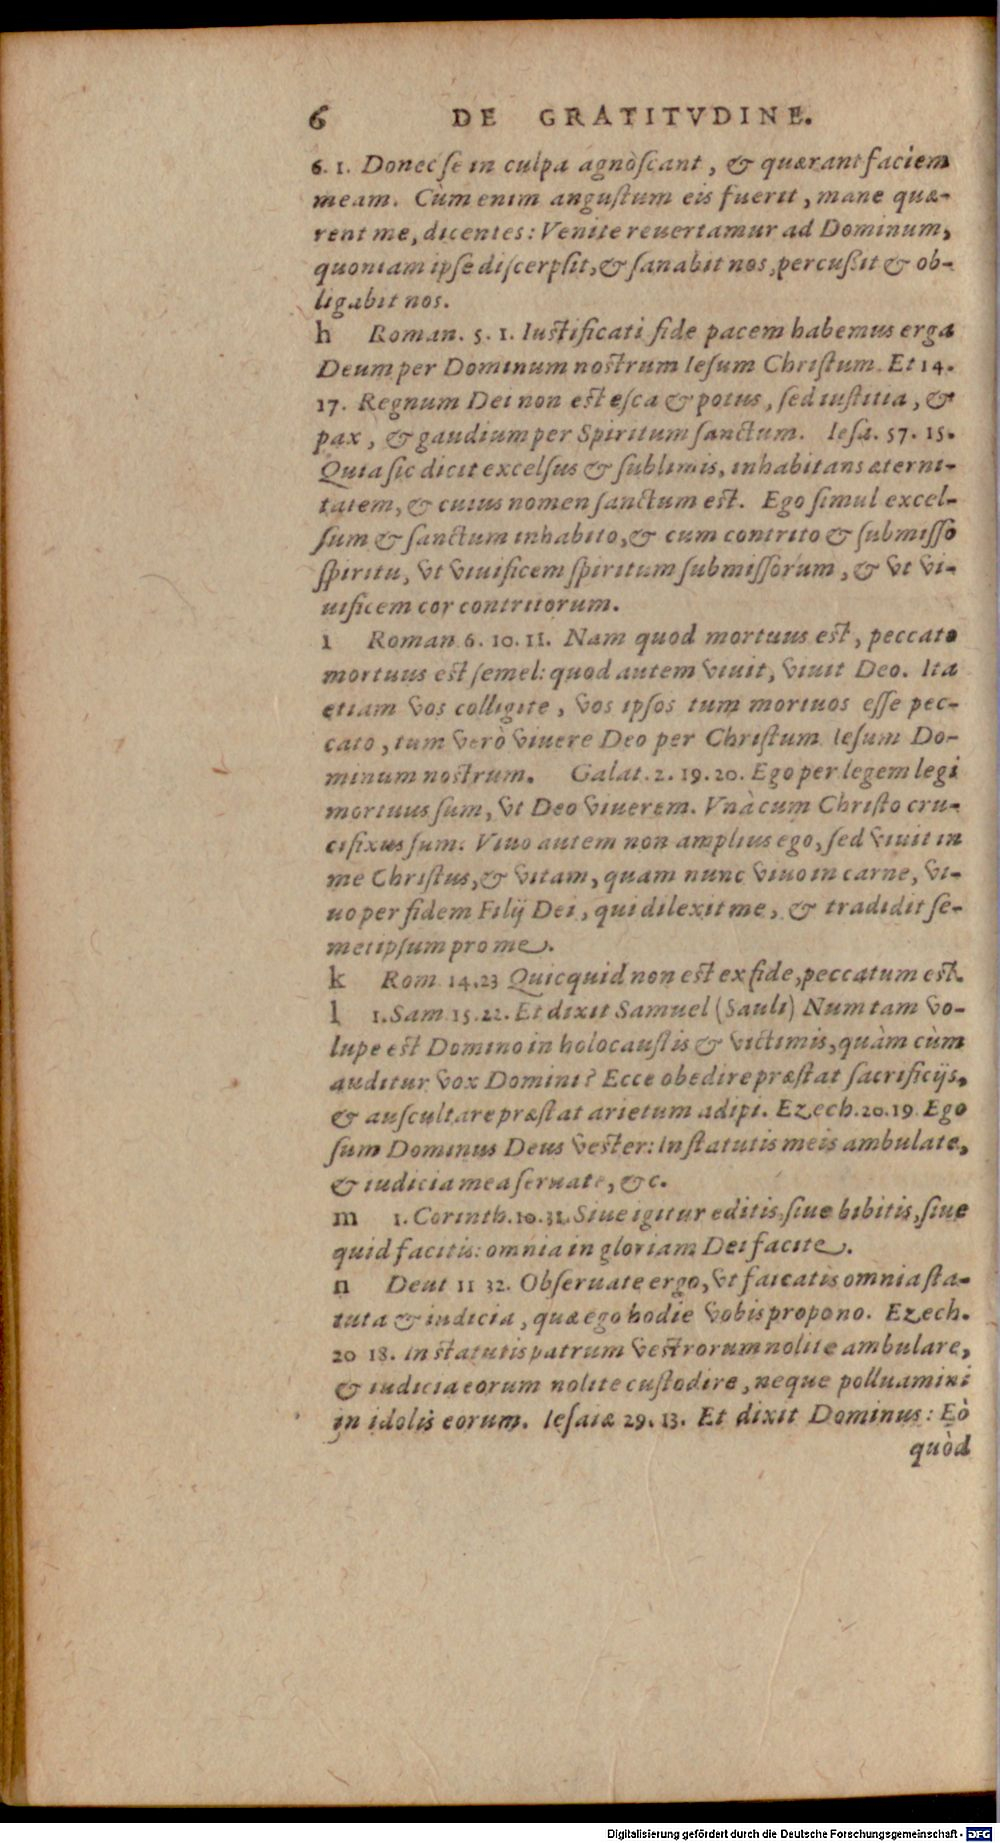 6 DE GRATITVDINE.
6. 1. Donec se in culpa agnòscant, & quærant faciem
meam. Cùm enim angustum eis fuerit, mane quæ-
rent me, dicentes: Venite reuertamur ad Dominum,
quoniam ipse discerpsit, & sanabit nos, percußit & ob-
ligabit nos.
h Roman. 5. 1. Iustificati fide pacem habemus erga
Deum per Dominum nostrum Iesum Christum. Et 14.
17. Regnum Dei non est esca & potus, sed iustitia, &
pax, & gaudium per Spiritum sanctum. Iesa. 57. 15.
Quia sic dicit excelsus & sublimis, inhabitans æterni-
tatem, & cuius nomen sanctum est. Ego simul excel-
sum & sanctum inhabito, & cum contrito & submisso
spiritu, vt viuificem spiritum submissorum, & vt vi-
uificem cor contritorum.
i Roman. 6. 10. 11. Nam quod mortuus est, peccato
mortuus est semel: quod autem viuit, viuit Deo. Ita
etiam vos colligite, vos ipsos tum mortuos esse pec-
cato, tum verò viuere Deo per Christum Iesum Do-
minum nostrum. Galat. 2. 19. 20. Ego per legem legi
mortuus sum, vt Deo viuerem. Vnà cum Christo cru-
cifixus sum. Viuo autem non amplius ego, sed viuit in
me Christus, & vitam, quam nunc viuo in carne, vi-
uo per fidem Filij Dei, qui dilexit me, & tradidit se-
metipsum pro me.
k Rom. 14.23 Quicquid non est ex fide, peccatum est.
l 1. Sam. 15. 22. Et dixit Samuel (Sauli) Num tam vo-
lupe est Domino in holocaustis & victimis, quàm cùm
auditur vox Domini? Ecce obedire præstat sacrificijs,
& auscultare præstat arietum adipi. Ezech. 20. 19. Ego
sum Dominus Deus vester: In statutis meis ambulate,
& iudicia mea seruate, &c.
m 1. Corinth. 10. 31. Siue igitur editis, siue bibitis, siue
quid facitis: omnia in gloriam Dei facite.
n Deut 11 32. Obseruate ergo, vt faicatis omnia sta-
tuta & iudicia, quæ ego hodie vobis propono. Ezech.
20 18. in statutis patrum vestrorum nolite ambulare,
& iudicia eorum nolite custodire, neque polluamini
in idolis eorum. Iesaiæ 29. 13. Et dixit Dominus: Eò
quòd
Digitalisierung gefördert durch die Deutsche Forschungsgemeinschaft - DFG